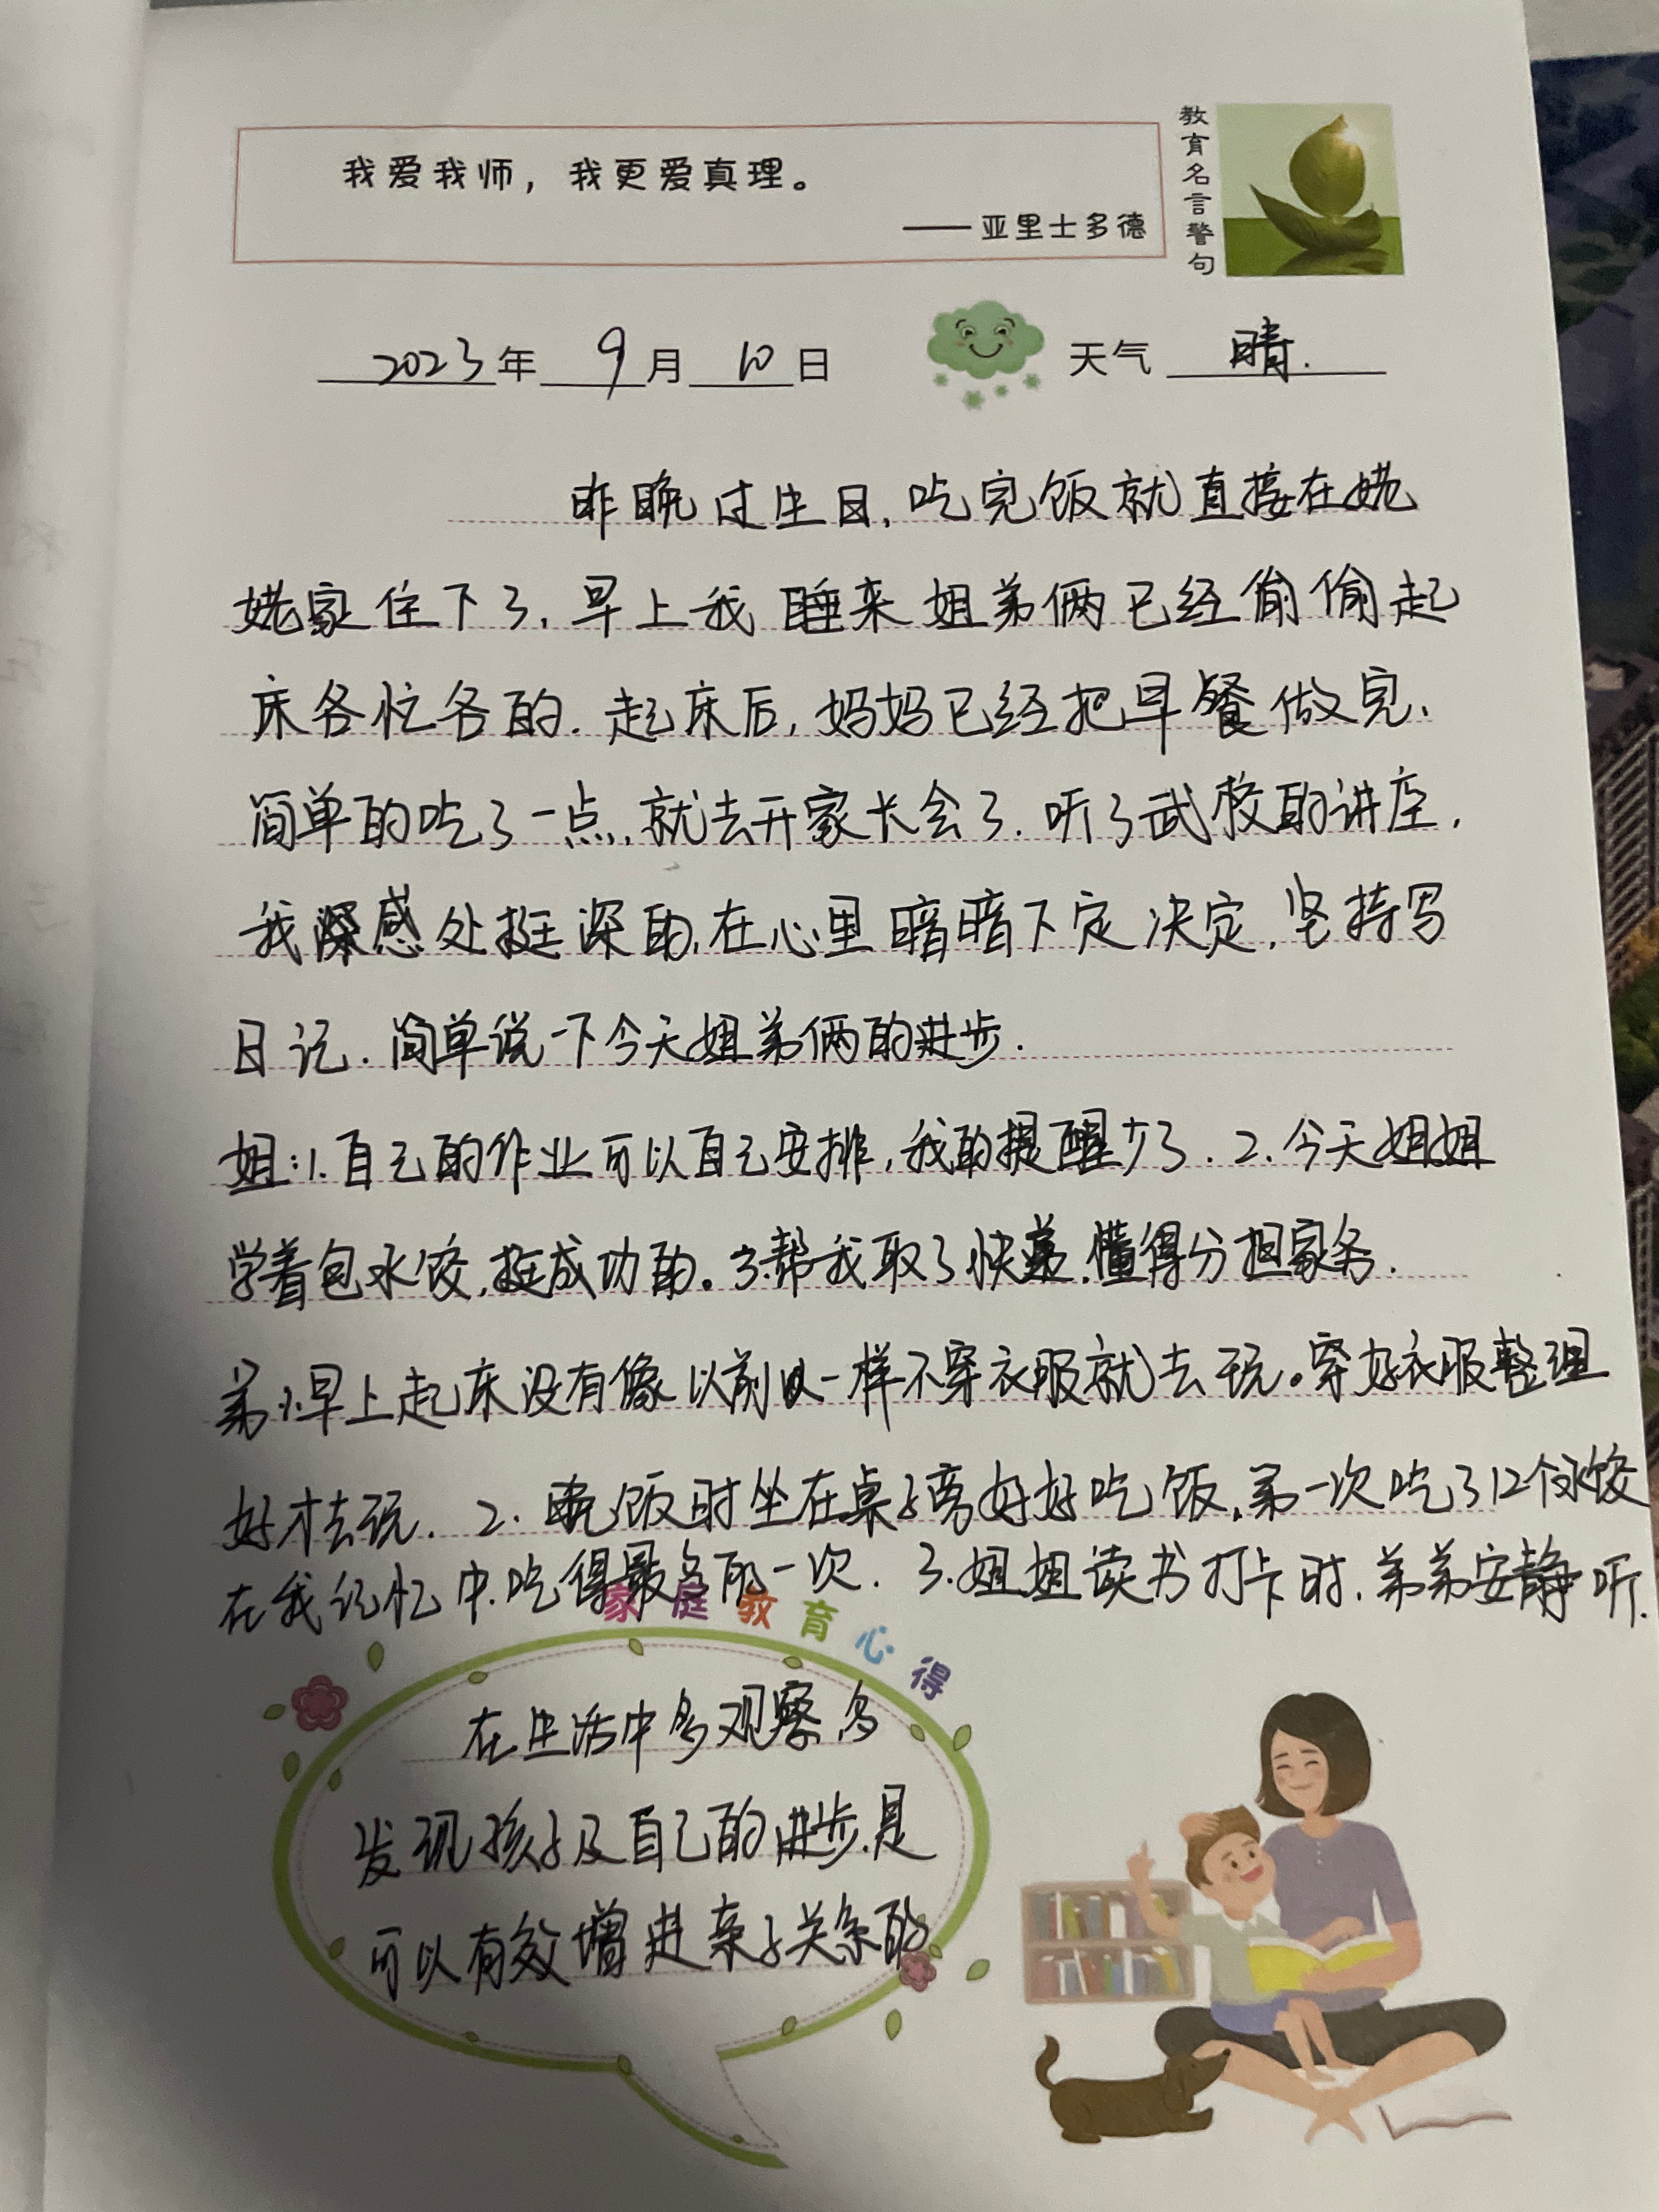 我爱我师，我更爱真理。
——亚里士多德
教育名言警句
2023年9月10日
天气 晴.
昨晚过生日,吃完饭就直接在姥
姥家住下了,早上我睡来姐弟俩已经偷偷起
床各忙各的.起床后,妈妈已经把早餐做完、
简单的吃了一点,就去开家长会了.听了武校的讲座,
我深感处挺深的,在心里暗暗下定决定,坚持写
日记.简单说一下今天姐弟俩的进步.
姐:1.自己的作业可以自己安排,我的提醒少了.2.今天姐姐
学着包水饺,挺成功的。3.帮我取了快递,懂得分担家务.
弟:1.早上起床没有像以前以一样不穿衣服就去玩。穿好衣服整理
好才去玩.2.晚饭时坐在桌子旁好好吃饭,第一次吃了12个水饺
在我记忆中,吃得最多的一次.3.姐姐读书打卡时,弟弟安静听.
家庭教育心得
在生活中多观察,多
发现孩子及自己的进步,是
可以有效增进亲子关系的